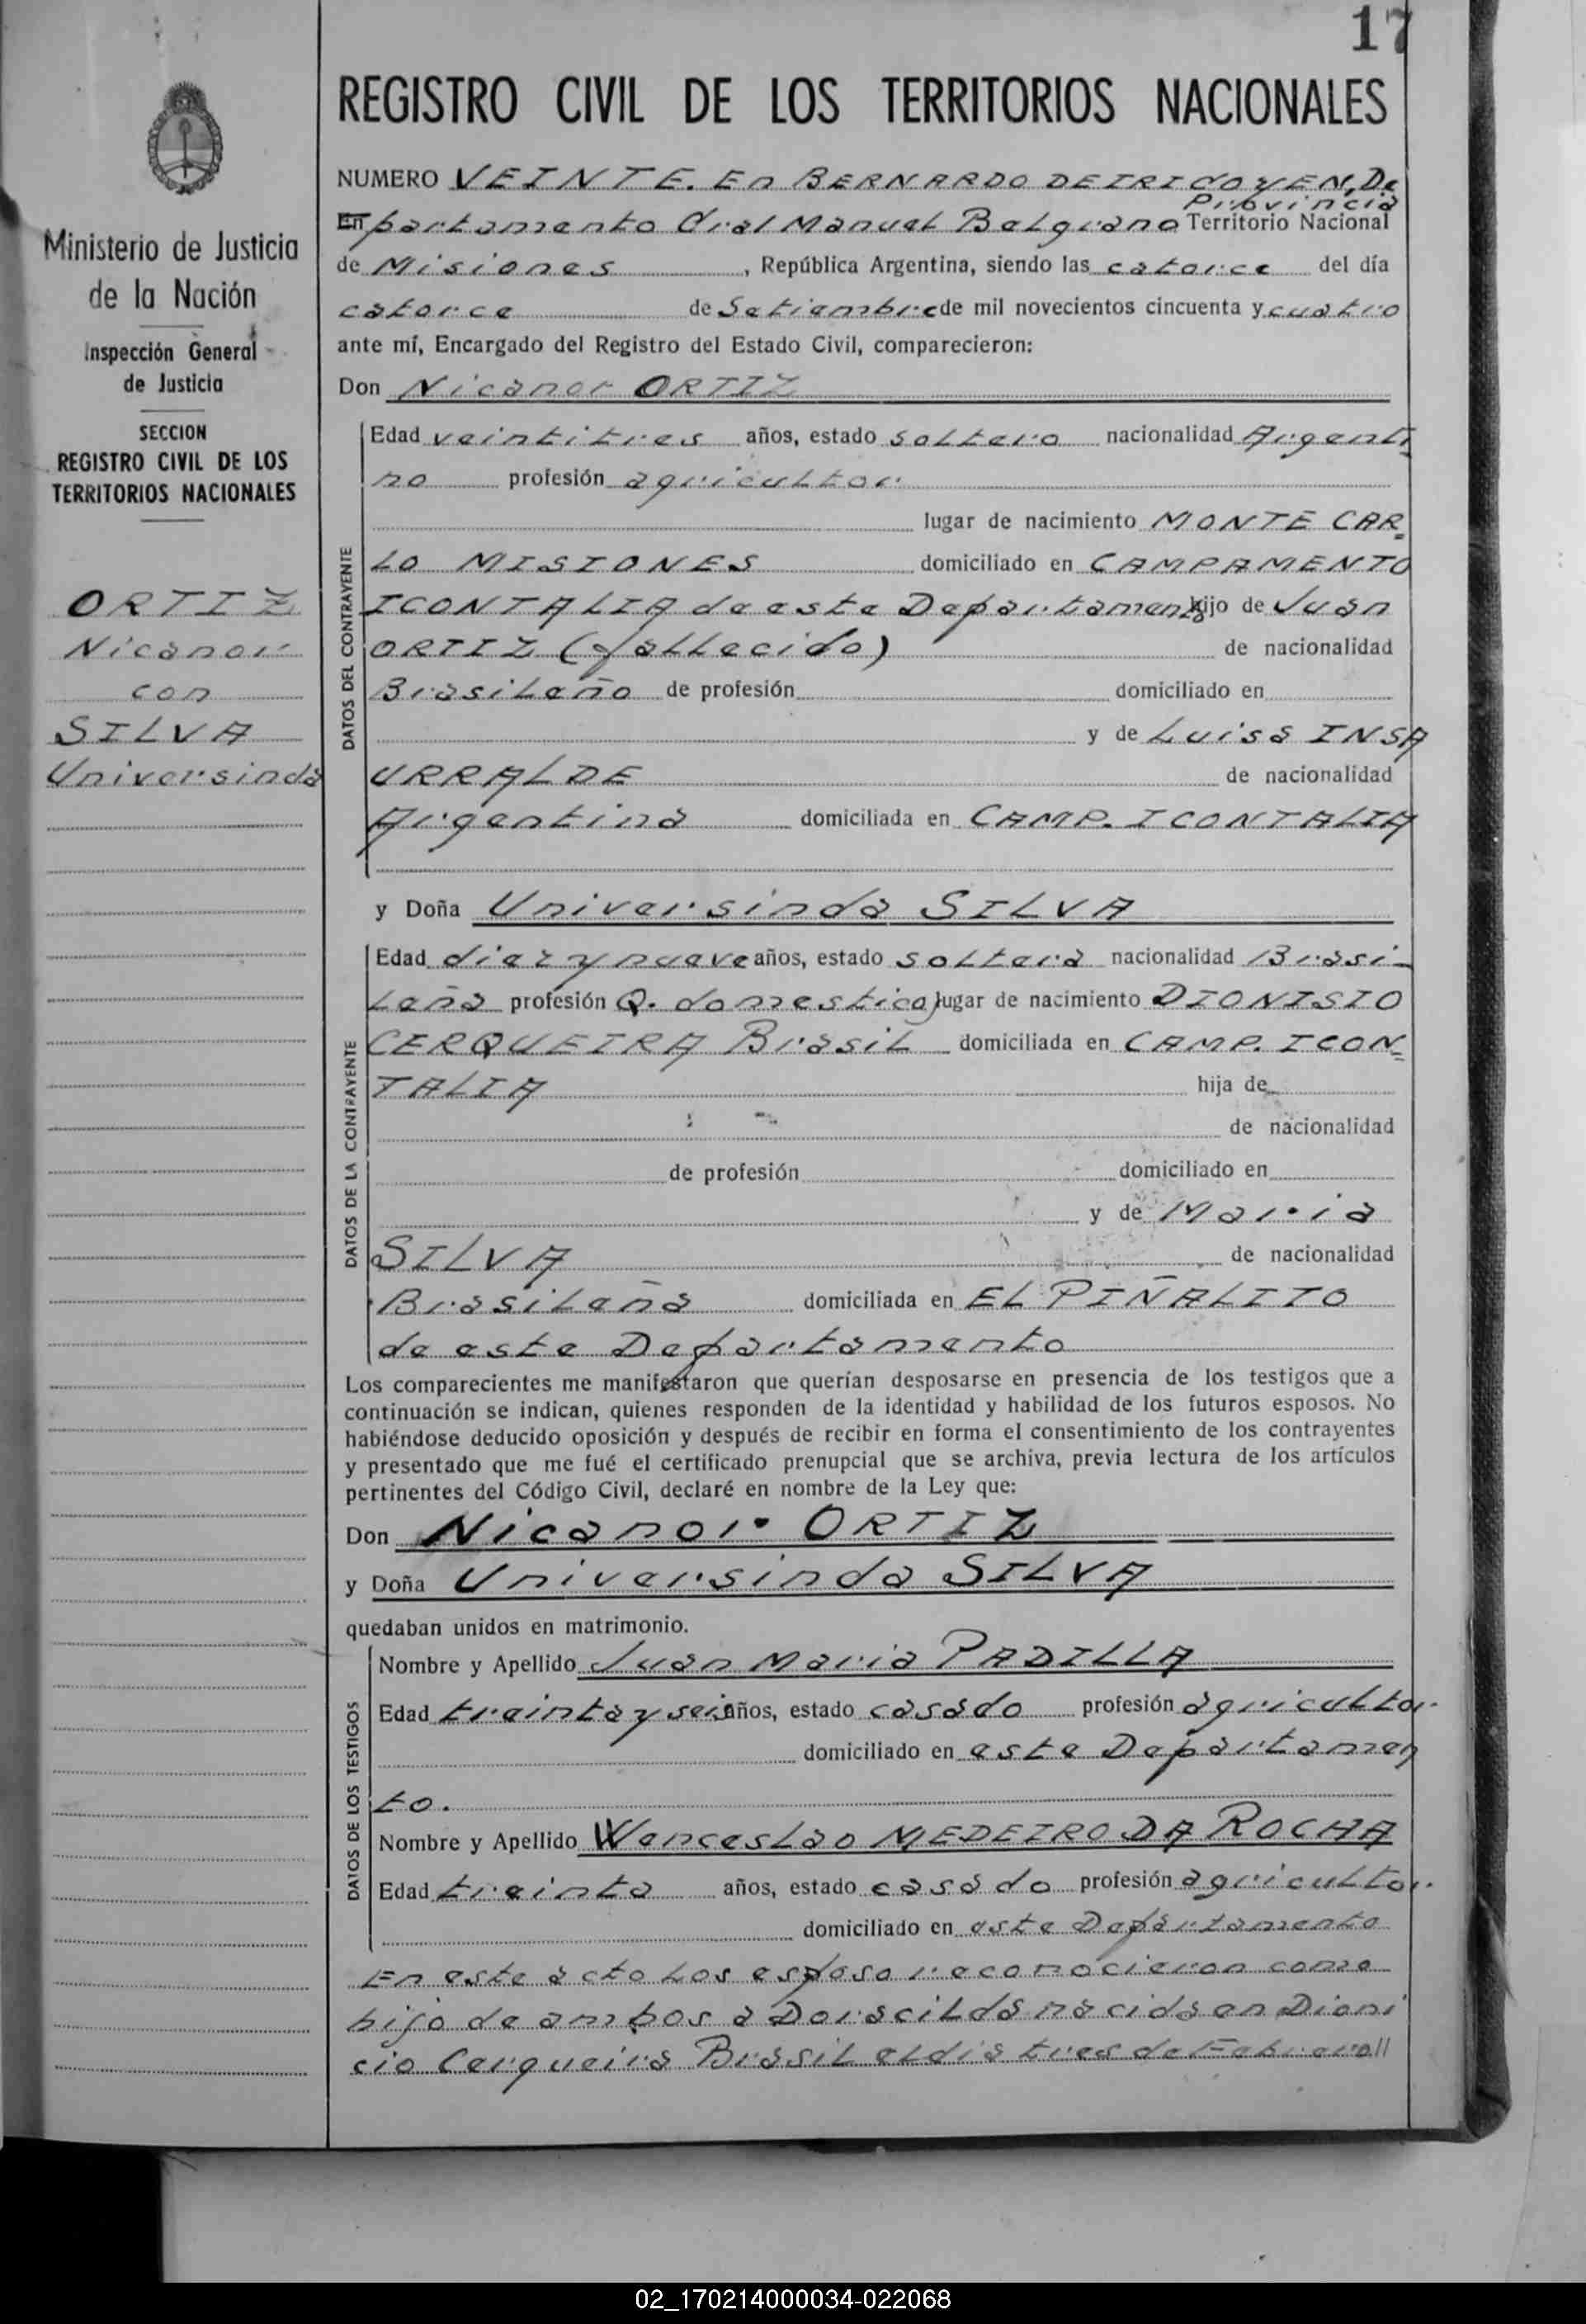 17
REGISTRO CIVIL DE LOS TERRITORIOS NACIONALES
Ministerio de Justicia
de la Nación
Inspección General
de Justicia
SECCION
REGISTRO CIVIL DE LOS
TERRITORIOS NACIONALES
ORTIZ
Nicanor
con
SILVA
Universinda
NUMERO VEINTE. En BERNARDO DE IRIGOYEN, De
Provincia
En partamento Gral Manuel Belgrano Territorio Nacional
de Misiones, República Argentina, siendo las catorce del día
catorce de Setiembre de mil novecientos cincuenta y cuatro
ante mí, Encargado del Registro del Estado Civil, comparecieron:
Don Nicanor ORTIZ
DATOS DEL CONTRAYENTE
Edad veintitres años, estado soltero nacionalidad Argenti
no profesión agricultor
lugar de nacimiento MONTE CAR=
LO MISIONES domiciliado en CAMPAMENTO
ICONTALIA de este Departamento hijo de Juan
ORTIZ (fallecido) de nacionalidad
Brasileño de profesión domiciliado en
y de Luisa INSA
URRALDE de nacionalidad
Argentina domiciliada en CAMP. ICONTALIA
y Doña Universinda SILVA
DATOS DE LA CONTRAYENTE
Edad diez y nueve años, estado soltera nacionalidad Brasi-
leña profesión Q. domestico lugar de nacimiento DIONISIO
CERQUEIRA Brasil domiciliada en CAMP. ICON=
TALIA hija de
de nacionalidad
de profesión domiciliado en
y de Maria
SILVA de nacionalidad
Brasileña domiciliada en EL PIÑALITO
de este Departamento
Los comparecientes me manifestaron que querían desposarse en presencia de los testigos que a
continuación se indican, quienes responden de la identidad y habilidad de los futuros esposos. No
habiéndose deducido oposición y después de recibir en forma el consentimiento de los contrayentes
y presentado que me fué el certificado prenupcial que se archiva, previa lectura de los artículos
pertinentes del Código Civil, declaré en nombre de la Ley que:
Don Nicanor ORTIZ
y Doña Universinda SILVA
quedaban unidos en matrimonio.
DATOS DE LOS TESTIGOS
Nombre y Apellido Juan Maria PADILLA
Edad treinta y seis años, estado casado profesión agricultor
domiciliado en este Departamen
to.
Nombre y Apellido Wenceslao MEDEIRO DA ROCHA
Edad treinta años, estado casado profesión agricultor.
domiciliado en este Departamento
En este acto los esposo reconocieron como
hijo de ambos a Doracilda nacida en Dioni
cio Cerqueira Brasil el dia tres de Febrero//
02_170214000034-022068